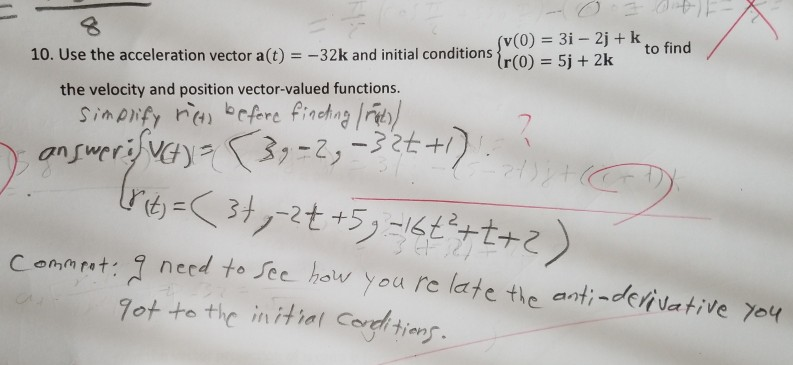 8
10. Use the acceleration vector a(t) = −32k and initial conditions {v(0) = 3i − 2j + k
r(0) = 5j + 2k to find
the velocity and position vector-valued functions.
Simplify r'(t) before finding |r'(t)|
answer is {V(t) = ⟨3, -2, -32t+1⟩ ?
r(t) = ⟨3t, -2t+5, -16t²+t+2⟩
Comment: I need to see how you relate the anti-derivative you
got to the initial conditions.